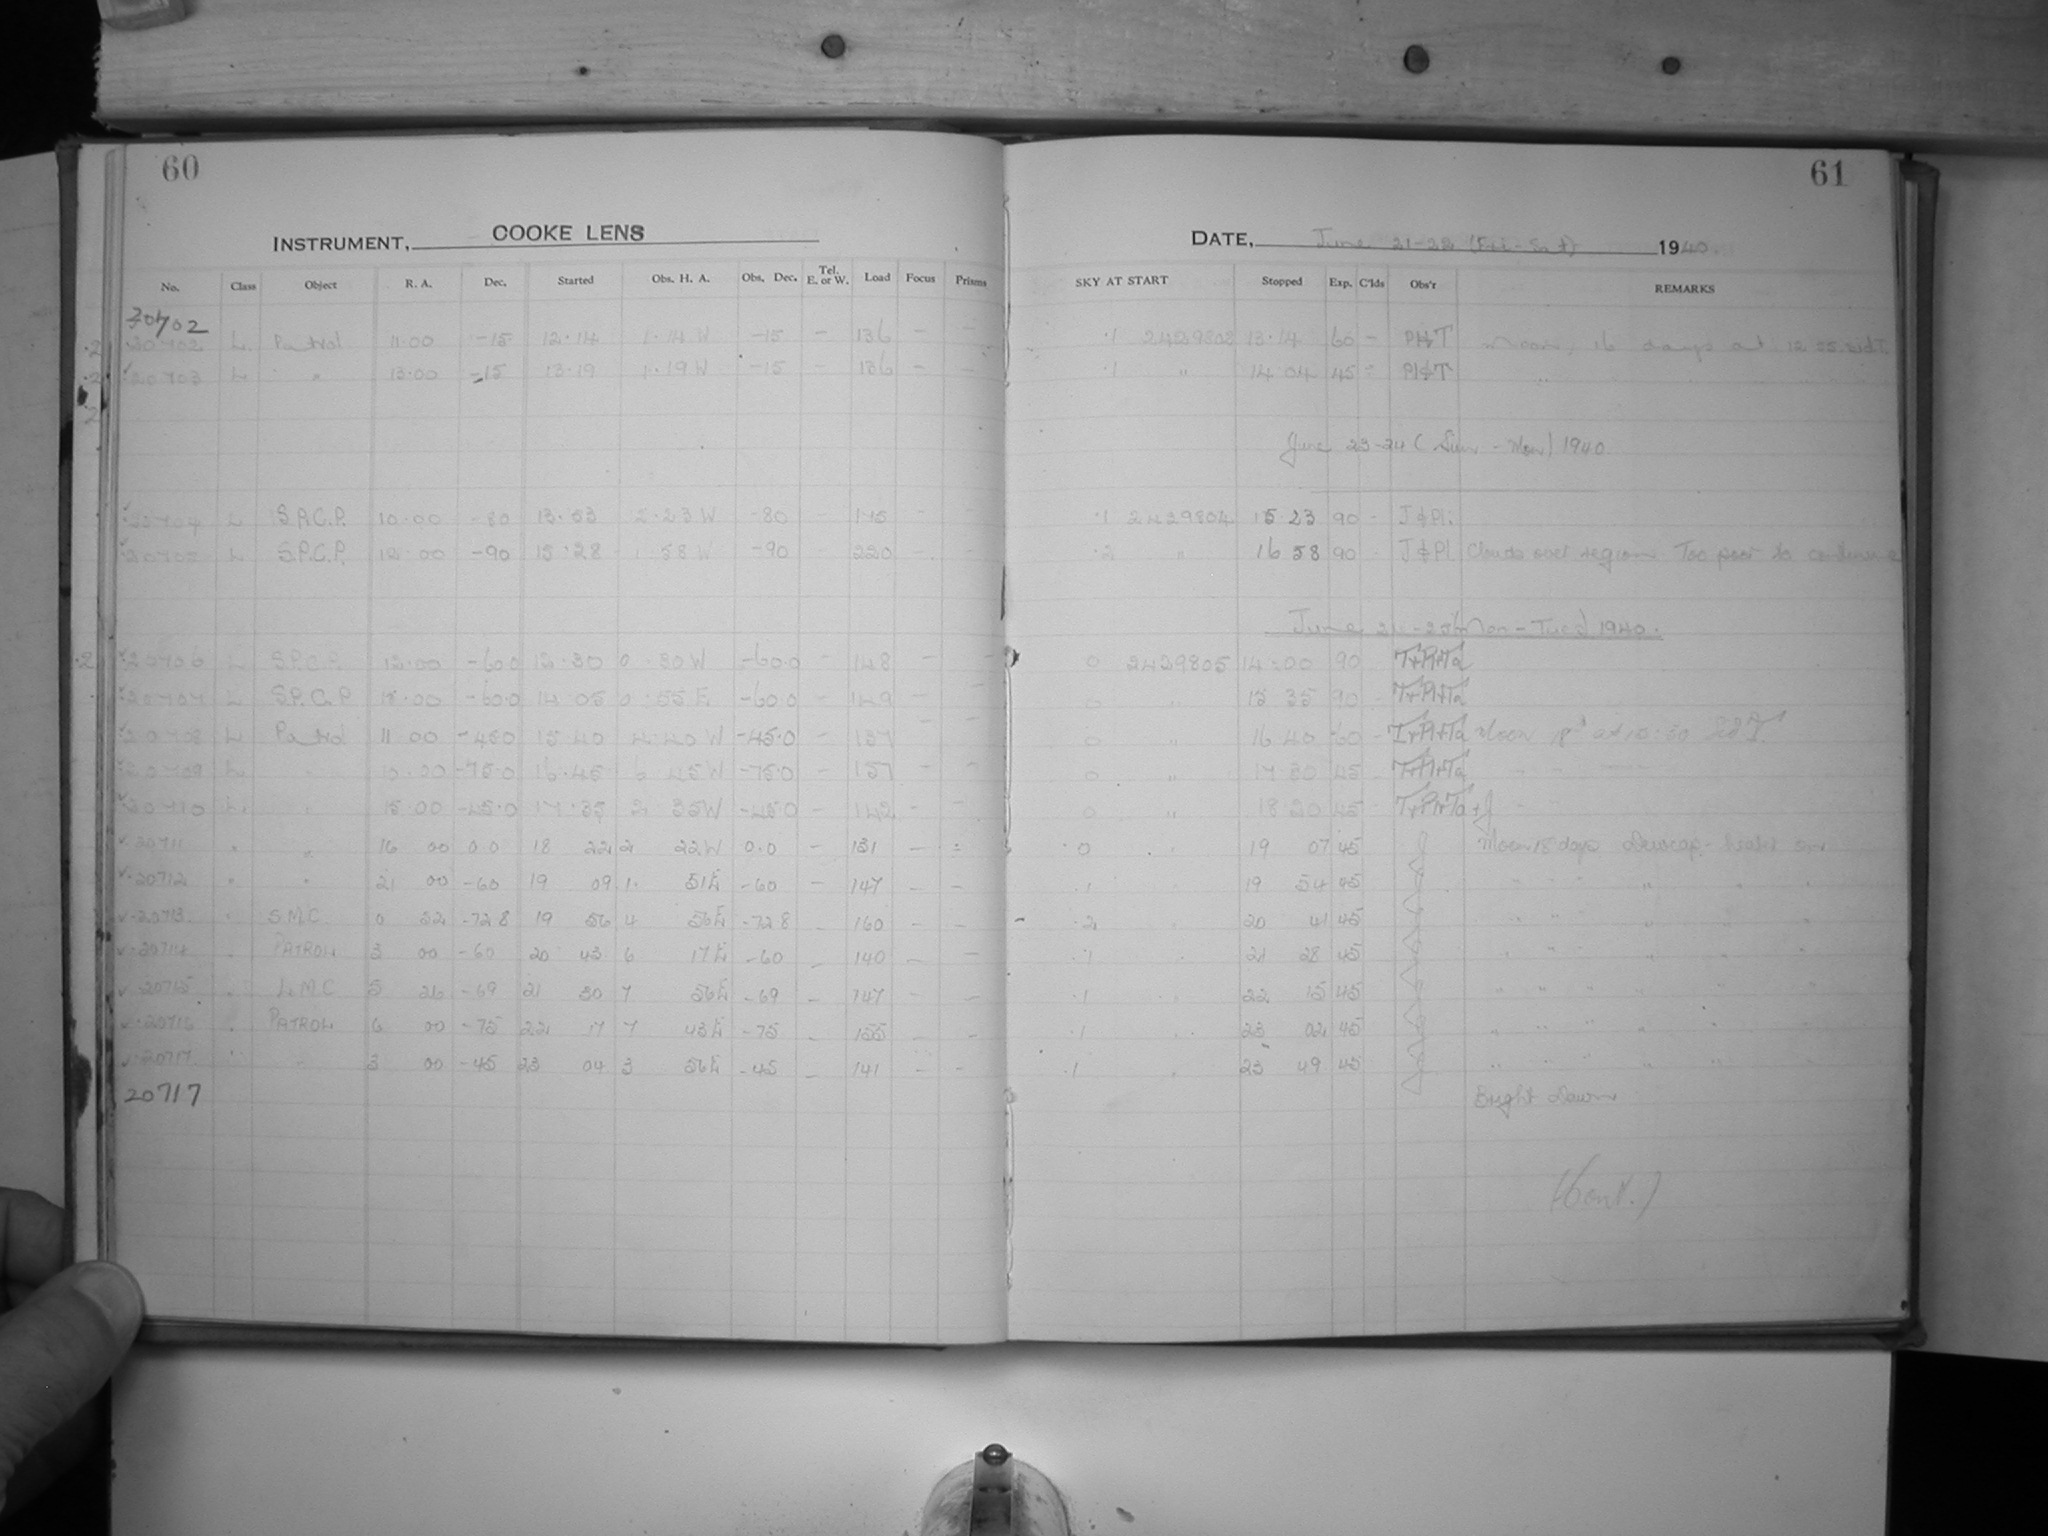 60
INSTRUMENT, COOKE LENS
No. Class Object R. A. Dec. Started Obs. H. A. Obs. Dec. Tel. E. or W. Load Focus Prisms
20702
20702 L Patrol 11.00 -15 12.14 1.14 W -15 - 136 - -
20703 L " 13.00 -15 13.19 1.19 W -15 - 136 - -
20704 L S.P.C.P. 10.00 -80 13.53 2.23 W -80 - 145 - -
20705 L S.P.C.P. 12.00 -90 15.28 1.58 W -90 - 220 - -
20706 L S.P.C.P. 12.00 -60.0 12.30 0.30 W -60.0 - 148 - -
20707 L S.P.C.P. 15.00 -60.0 14 05 0.55 E -60.0 - 149 - -
20708 L Patrol 11 00 -45.0 15.40 4.40 W -45.0 - 137 - -
20709 L " 10.00 -75.0 16.45 6 45 W -75.0 - 157 - -
20710 L " 15.00 -45.0 17.35 2 35 W -45.0 - 142 - -
20711 " " 16 00 0.0 18 22 2 22 W 0.0 - 131 - -
20712 " " 21 00 -60 19 09 1. 51 E -60 - 147 - -
20713 " S.M.C. 0 52 -72.8 19 56 4 56 E -72.8 - 160 - -
20714 " PATROL 3 00 -60 20 43 6 17 E -60 - 140 - -
20715 " L.M.C 5 26 -69 21 30 7 56 E -69 - 147 - -
20716 " PATROL 6 00 -75 22 17 7 43 E -75 - 155 - -
20717 " " 3 00 -45 23 04 3 56 E -45 - 141 - -
20717
61
DATE, June 21-22 (Fri-Sat) 1940.
SKY AT START Stopped Exp. C'lds Obs'r REMARKS
.1 2429802 13.14 60 - Pl&T Moon, 16 days at 12.25 SidT.
.1 " 14.04 45 - Pl&T "
June 23-24 (Sun - Mon) 1940.
.1 2429804 15 23 90 - J&Pl.
.2 " 16 58 90 - J&Pl Clouds over region. Too poor to continue
June 24-25 (Mon-Tues) 1940.
0 2429805 14.00 90 T+Pl+Ta
0 " 15 35 90 - T+Pl+Ta
0 " 16 40 60 - T+Pl+Ta Moon 18d at 15.50 SidT.
0 " 17 30 45 - T+Pl+Ta
0 " 18.20 45 - T+Pl+Ta+J
0 " 19 07 45 Moon 18 days Dewcap-heater on
.1 19 54 45 " " " " "
.2 20 41 45 " " " " "
.1 21 28 45 " " " " "
.1 22 15 45 " " " " "
.1 23 02 45 " " " " "
.1 23 49 45 " " " " "
Bright Dawn
(Cont.)